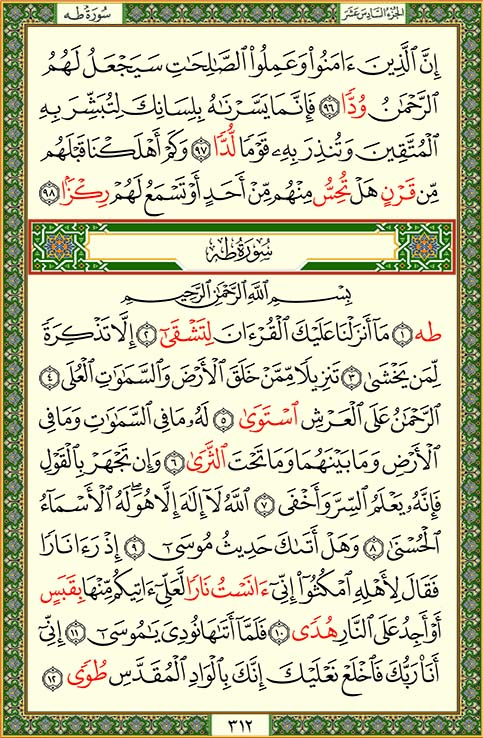 سُورَةُ طه
الجُزْءُ السَّادِسَ عَشَرَ
إِنَّ ٱلَّذِينَ ءَامَنُوا۟ وَعَمِلُوا۟ ٱلصَّٰلِحَٰتِ سَيَجْعَلُ لَهُمُ
ٱلرَّحْمَٰنُ وُدًّا ٩٦ فَإِنَّمَا يَسَّرْنَٰهُ بِلِسَانِكَ لِتُبَشِّرَ بِهِ
ٱلْمُتَّقِينَ وَتُنذِرَ بِهِۦ قَوْمًا لُّدًّا ٩٧ وَكَمْ أَهْلَكْنَا قَبْلَهُم
مِّن قَرْنٍ هَلْ تُحِسُّ مِنْهُم مِّنْ أَحَدٍ أَوْ تَسْمَعُ لَهُمْ رِكْزًۢا ٩٨
سُورَةُ طه
بِسْمِ ٱللَّهِ ٱلرَّحْمَٰنِ ٱلرَّحِيمِ
طه ١ مَآ أَنزَلْنَا عَلَيْكَ ٱلْقُرْءَانَ لِتَشْقَىٰٓ ٢ إِلَّا تَذْكِرَةً
لِّمَن يَخْشَىٰ ٣ تَنزِيلًا مِّمَّنْ خَلَقَ ٱلْأَرْضَ وَٱلسَّمَٰوَٰتِ ٱلْعُلَى ٤
ٱلرَّحْمَٰنُ عَلَى ٱلْعَرْشِ ٱسْتَوَىٰ ٥ لَهُۥ مَا فِى ٱلسَّمَٰوَٰتِ وَمَا فِى
ٱلْأَرْضِ وَمَا بَيْنَهُمَا وَمَا تَحْتَ ٱلثَّرَىٰ ٦ وَإِن تَجْهَرْ بِٱلْقَوْلِ
فَإِنَّهُۥ يَعْلَمُ ٱلسِّرَّ وَأَخْفَى ٧ ٱللَّهُ لَآ إِلَٰهَ إِلَّا هُوَ ۖ لَهُ ٱلْأَسْمَآءُ
ٱلْحُسْنَىٰ ٨ وَهَلْ أَتَىٰكَ حَدِيثُ مُوسَىٰٓ ٩ إِذْ رَءَا نَارًا
فَقَالَ لِأَهْلِهِ ٱمْكُثُوٓا۟ إِنِّىٓ ءَانَسْتُ نَارًا لَّعَلِّىٓ ءَاتِيكُم مِّنْهَا بِقَبَسٍ
أَوْ أَجِدُ عَلَى ٱلنَّارِ هُدًى ١٠ فَلَمَّآ أَتَىٰهَا نُودِىَ يَٰمُوسَىٰٓ ١١ إِنِّىٓ
أَنَا۠ رَبُّكَ فَٱخْلَعْ نَعْلَيْكَ ۖ إِنَّكَ بِٱلْوَادِ ٱلْمُقَدَّسِ طُوًى ١٢
٣١٢